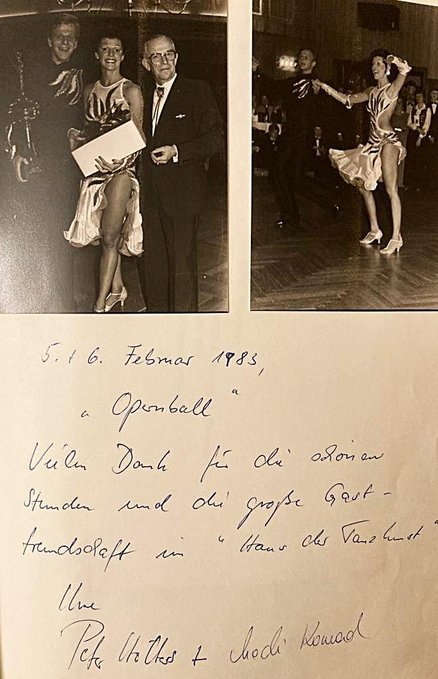 5. + 6. Februar 1983,
„ Opernball "
Vielen Dank für die schönen
Stunden und die große Gast-
freundschaft im "Haus der Tanzkunst"
Peter + Konrad